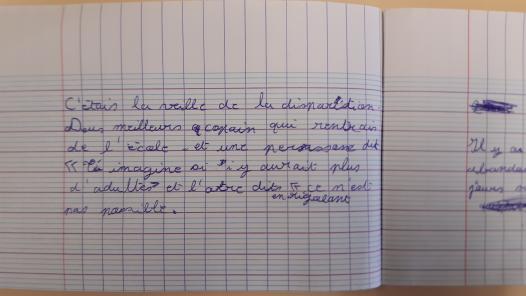 C'étais la veille de la disparition.
Deus meilleurs copain qui rentrais
de l'école et une personne dit
« Tu imagine si il y aurait plus
d'adultes » et l'otre dit « ce n'est
en rigolant
pas possible.
Il y a
abanda
jeurs